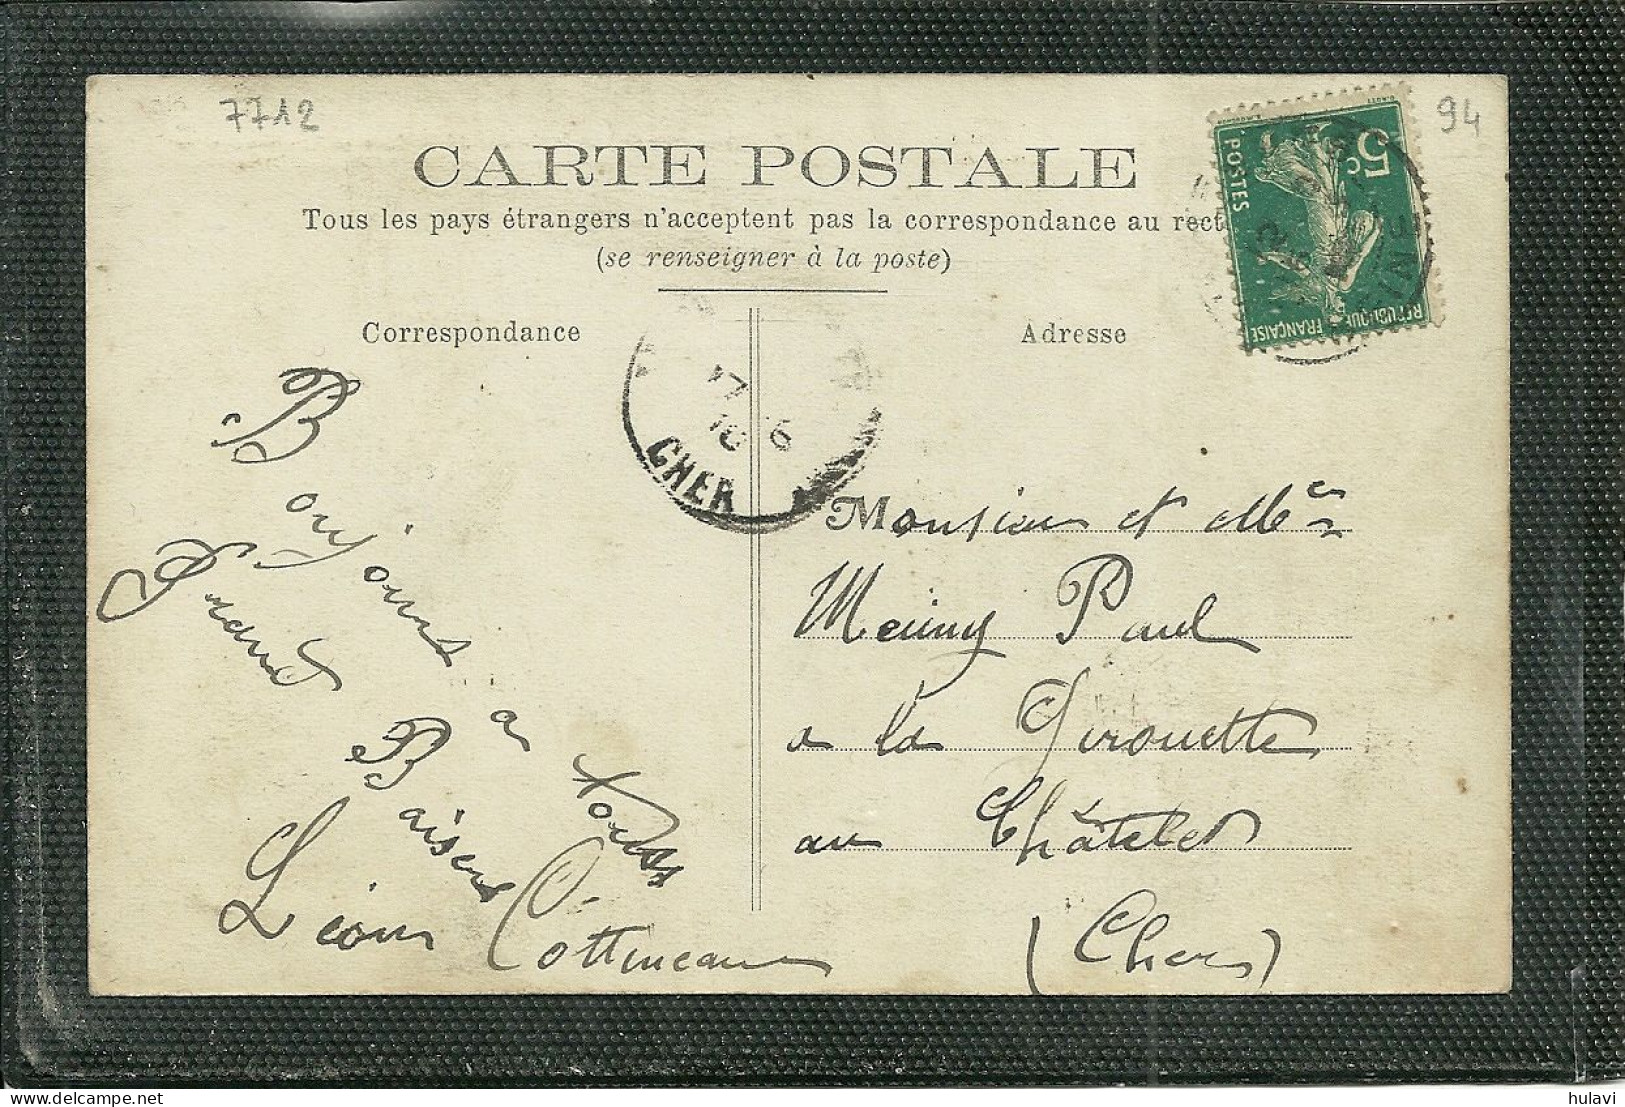 7712
94
CARTE POSTALE
Tous les pays étrangers n'acceptent pas la correspondance au rect
(se renseigner à la poste)
Correspondance
Adresse
5c
POSTES
REPUBLIQUE FRANÇAISE
17 6
10
CHER
Bonjours a tous
Grands Baisers
Léon Cottineau
Monsieur et Mme
Meuny Paul
a la Girouette
au Châtelet
(Cher)
delcampe.net
hulavi